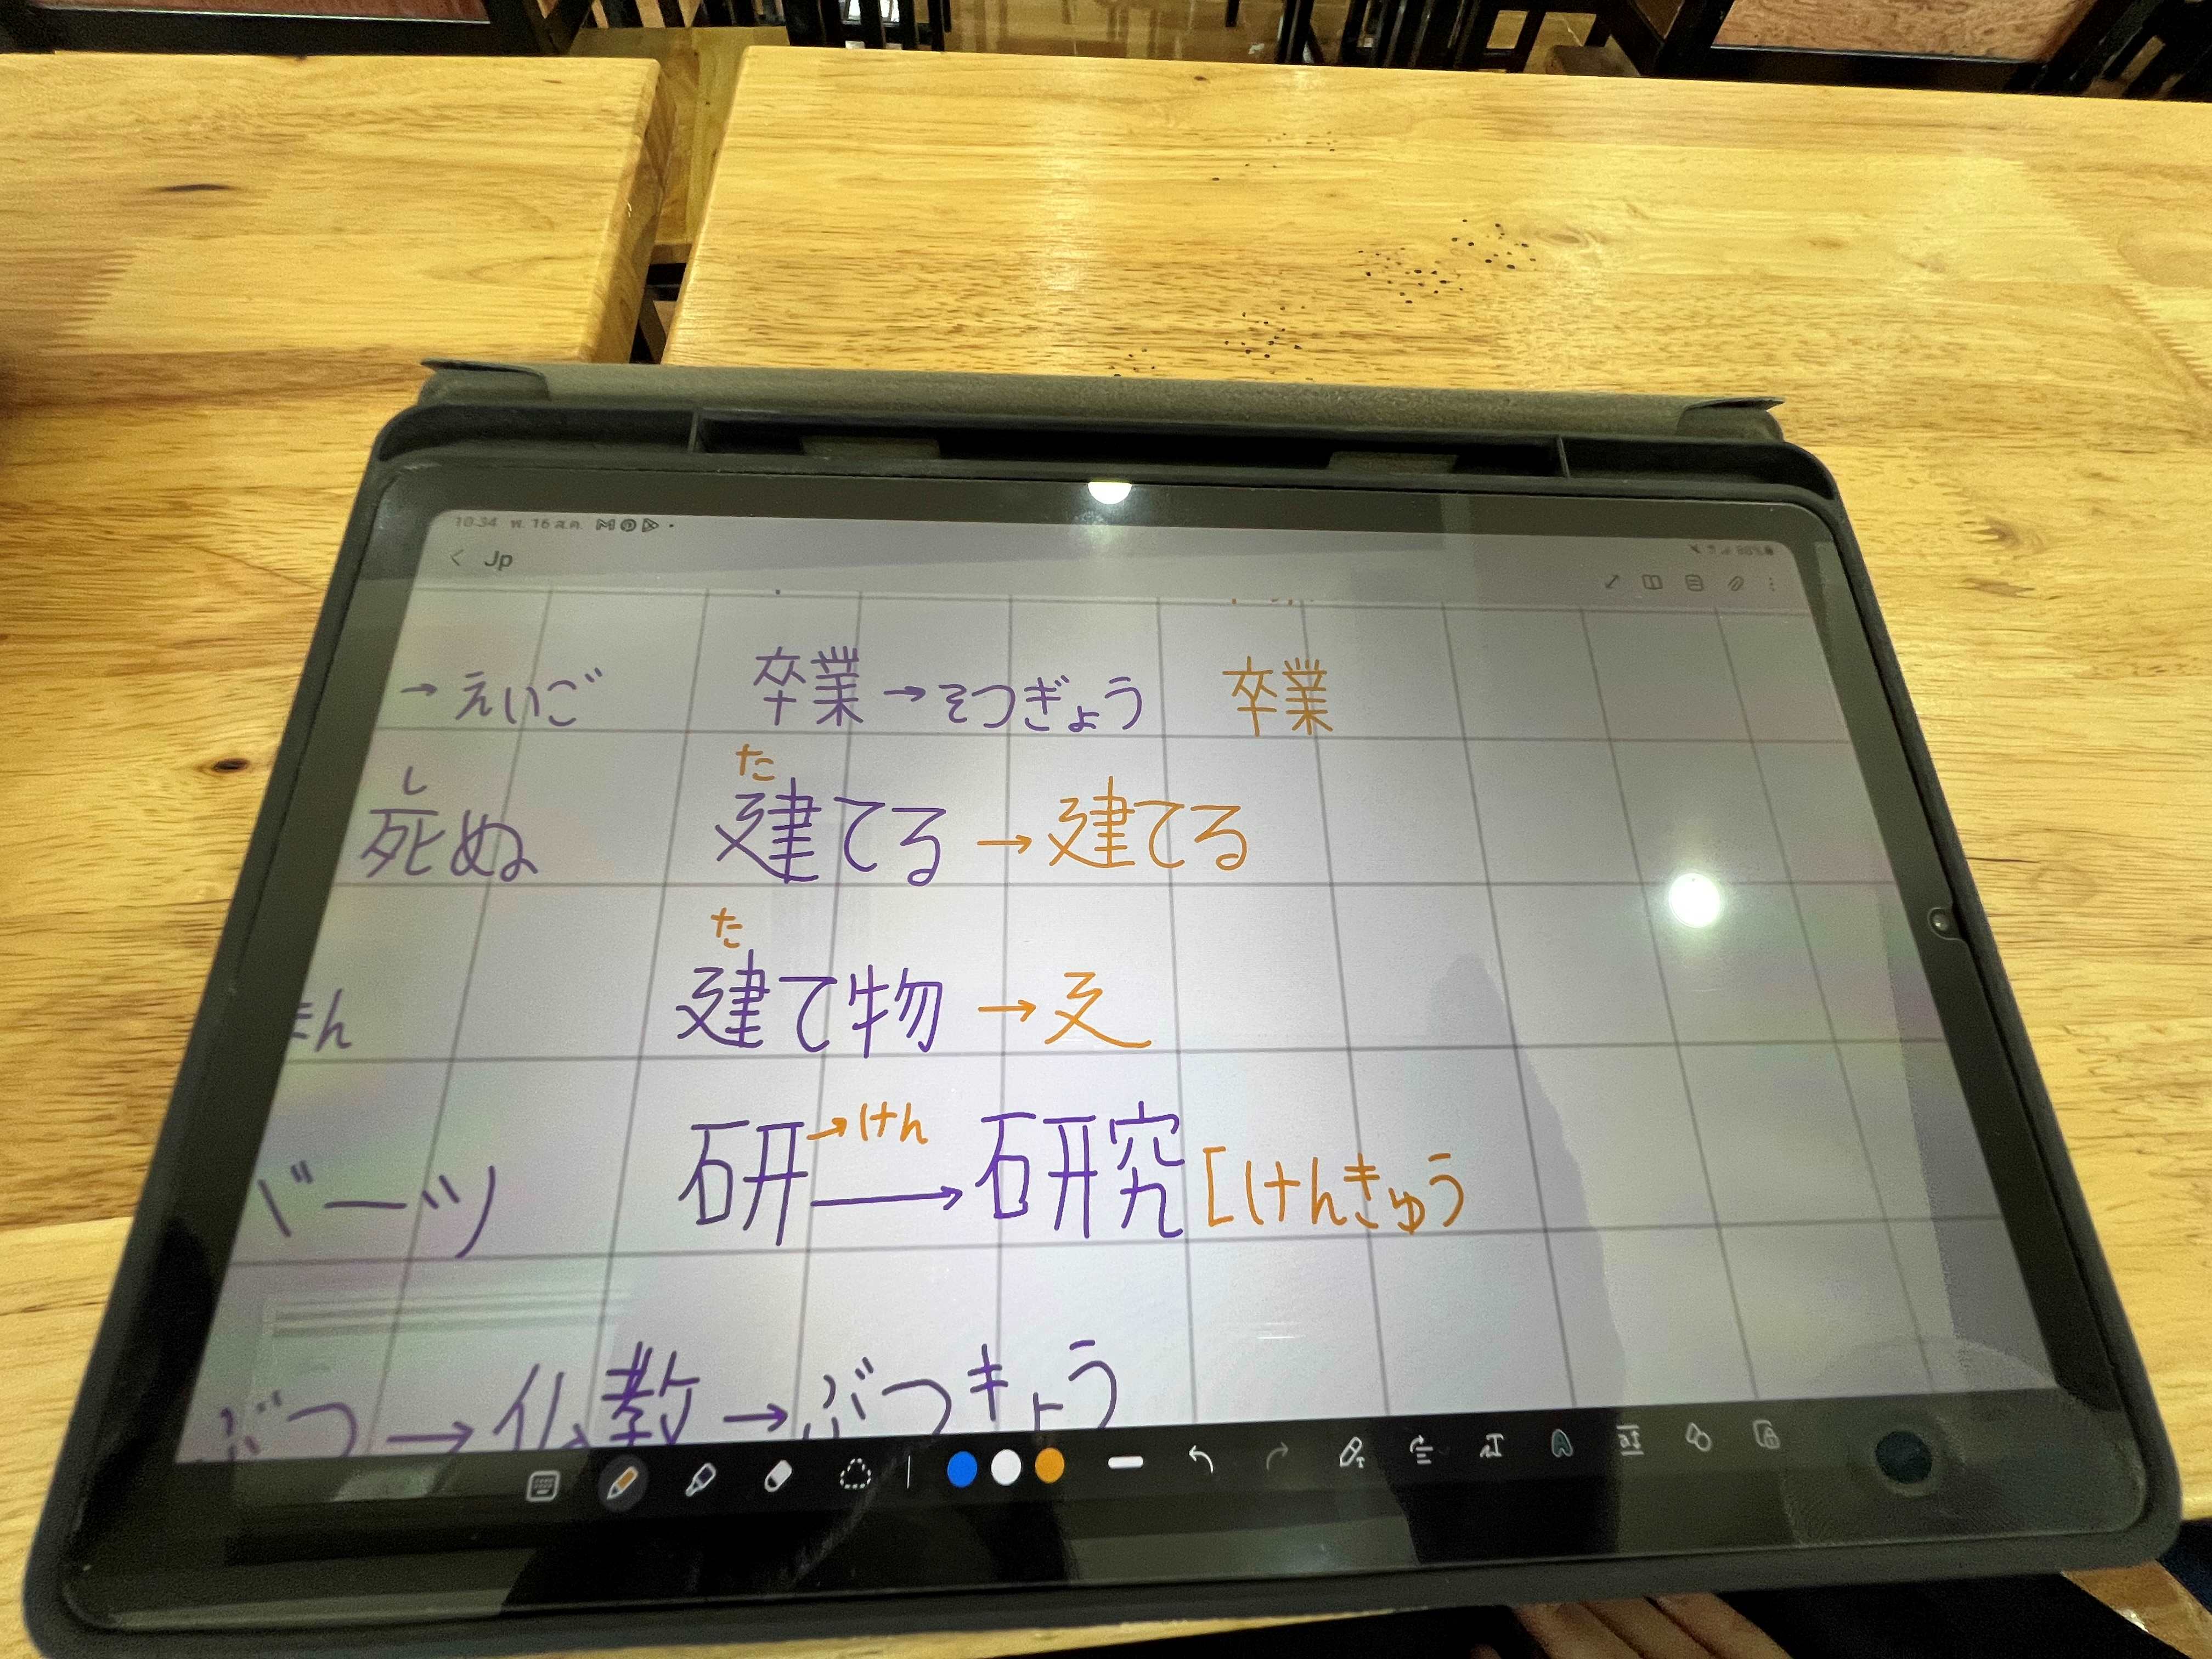 10:34 พ. 16 ส.ค.
Jp
→ えいご 卒業 → そつぎょう 卒業
し た
死ぬ 建てる → 建てる
た
建て物 → 廴
研 → けん → 研究 [けんきゅう
ぶつ → 仏教 → ぶつきょう